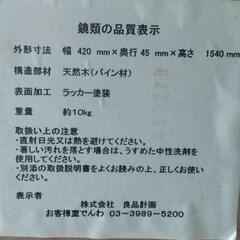 鏡類の品質表示
外形寸法　幅 420 mm×奥行 45 mm×高さ 1540 mm
構造部材　天然木(パイン材)
表面加工　ラッカー塗装
重量　約10kg
取扱い上の注意
・直射日光又は熱を避けてください。
・著しい汚れを落とす場合は、うすめた中性洗剤を
使用してください。
・別添の取扱説明書をよくお読みの上、正しくお使い
ください。
表示者
株式会社　良品計画
お客様室でんわ　03-3989-5200